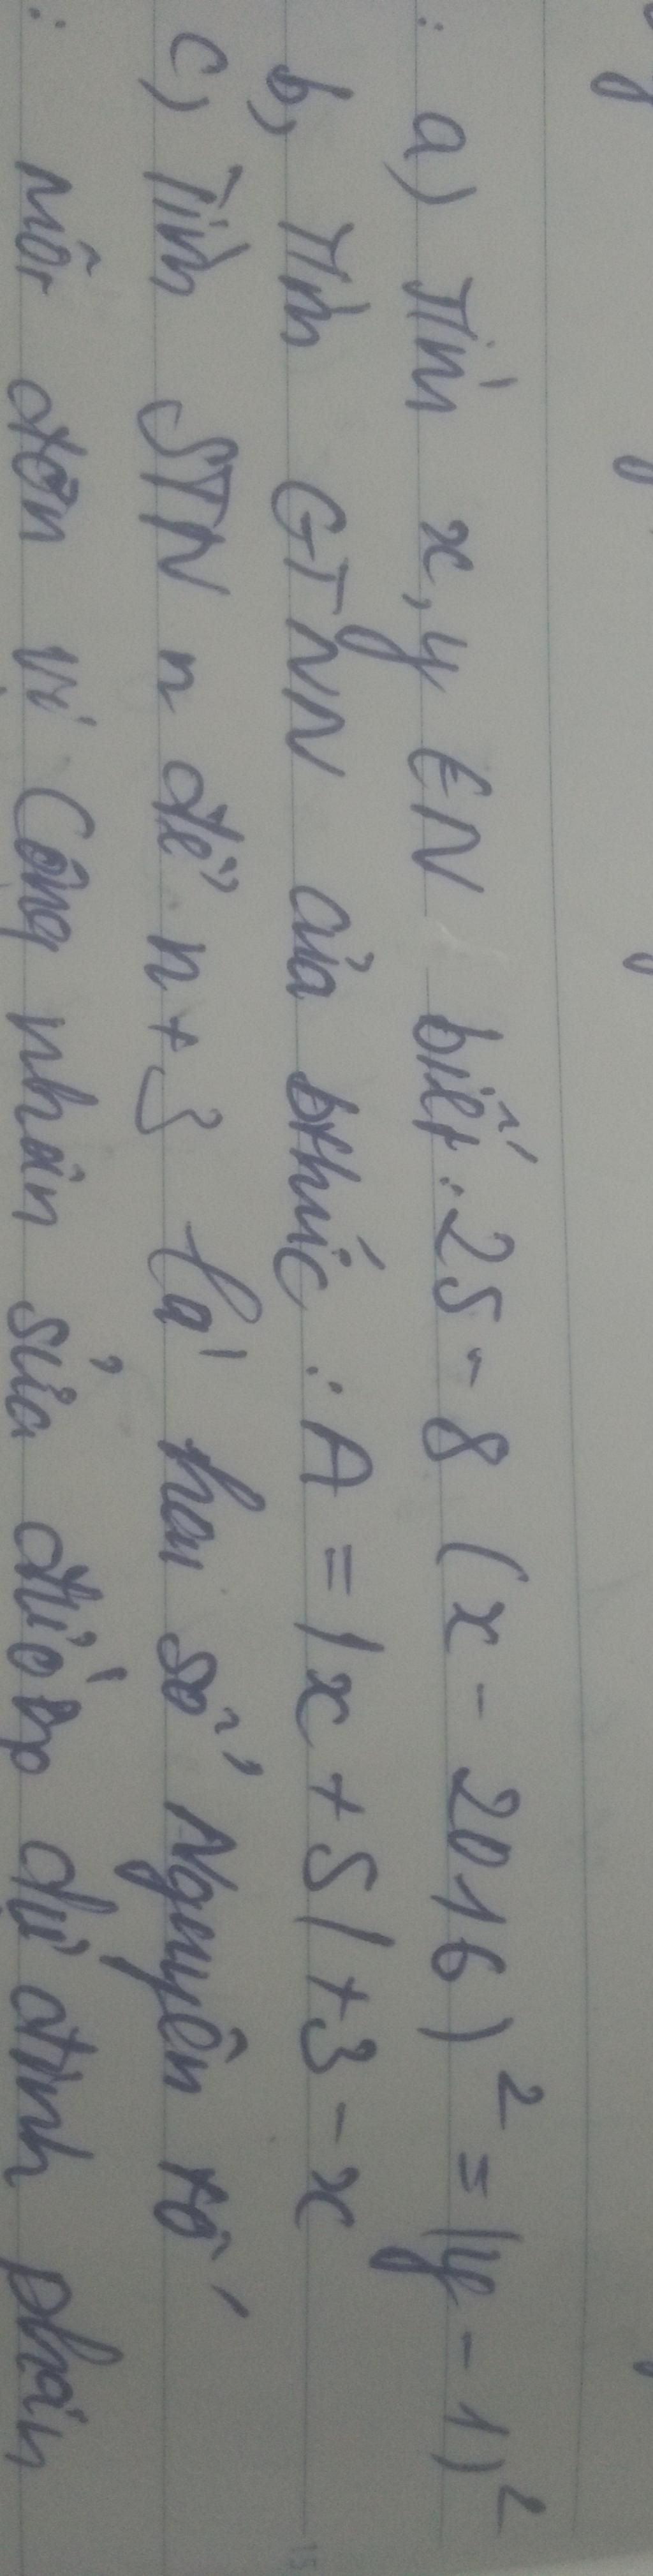 a) Tìm x, y ∈ N biết: 25 - 8 (x - 2016)² = (y - 1)²
b, Tìm GTNN của bthức : A = |x + 5| + 3 - x
c, Tìm STN n để n + 3 là hai số Nguyên tố
Một đơn vị Công nhân sửa đường dự định phân